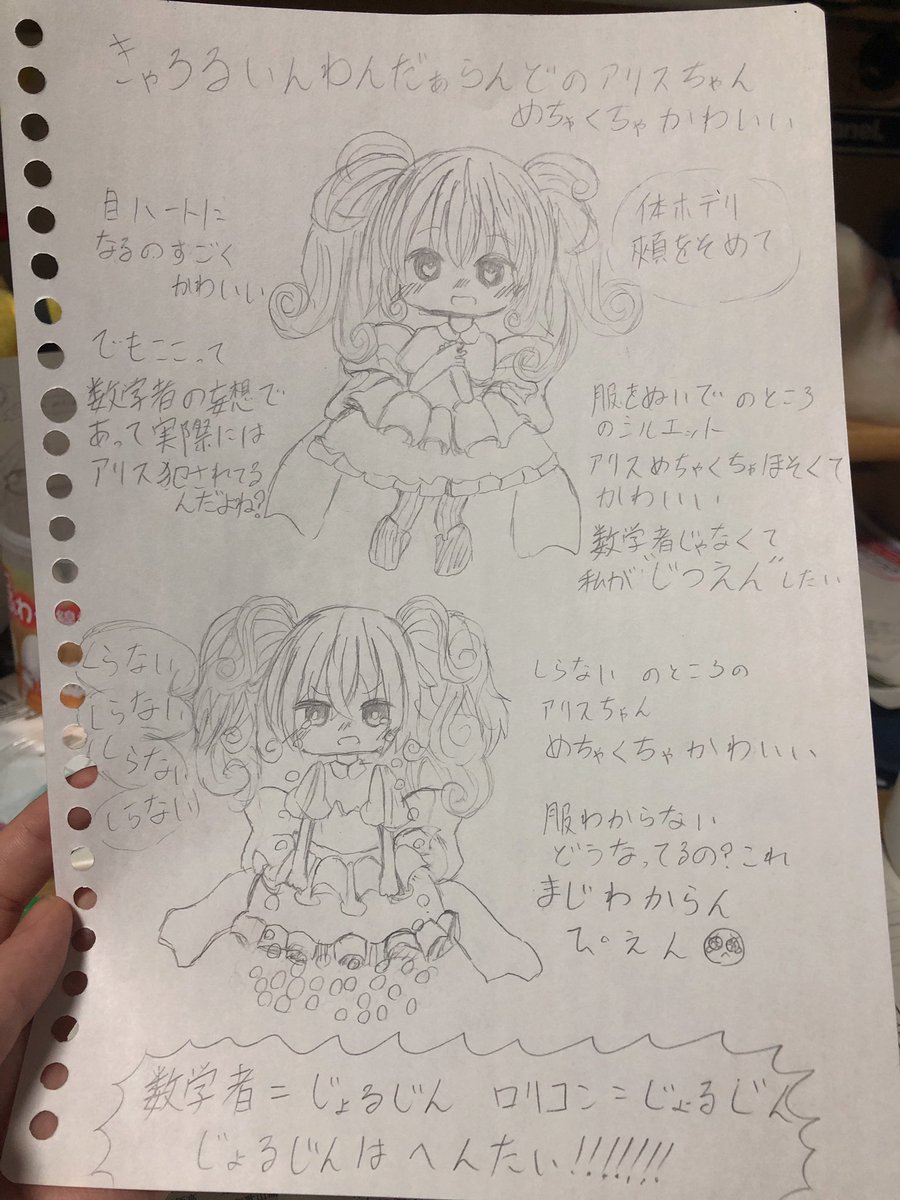 きゃろるいんわんだぁらんどのアリスちゃん
めちゃくちゃかわいい
目ハートに
なるのすごく
かわいい
体ホデリ
頬をそめて
でもここって
数学者の妄想で
あって実際には
アリス犯されてる
んだよね?
服をぬいでのところ
のシルエット
アリスめちゃくちゃほそくて
かわいいい
数学者じゃなくて
私が"じつえん"したい
しらない
しらない
しらない
しらない
しらないのところの
アリスちゃん
めちゃくちゃかわいい
服わからない
どうなってるの?これ
まじわからん
ぴえん
数学者=じょるじん ロリコン=じょるじん
じょるじんはへんたい!!!!!!!